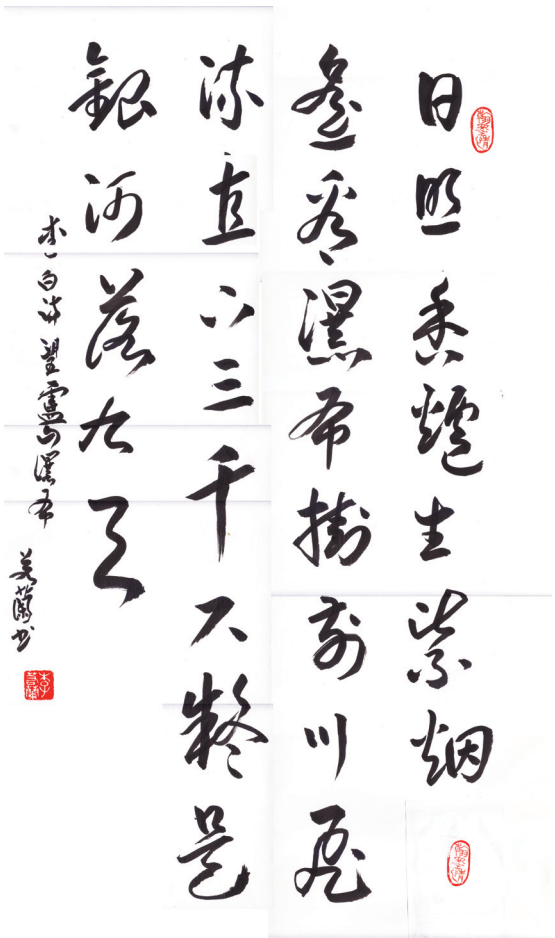 日照香爐生紫烟
遙看瀑布掛前川飛
流直下三千尺疑是
銀河落九天
李白詩望廬山瀑布 美蘭书